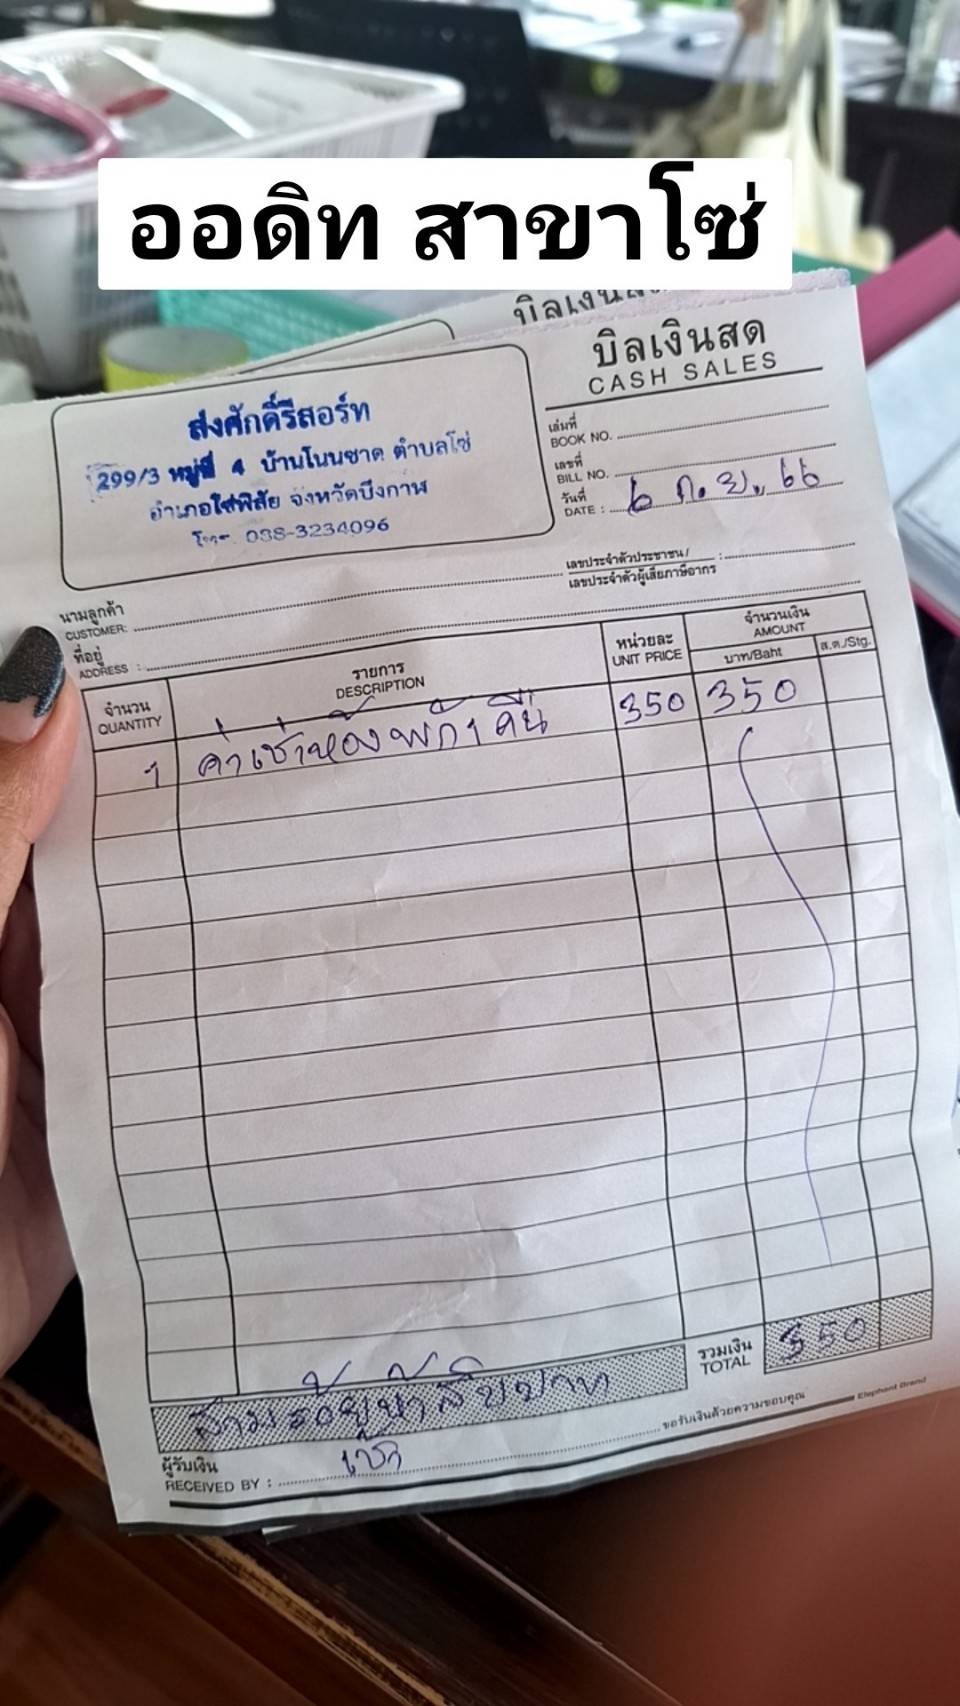 ออดิท สาขาโซ่
บิลเงินสด
บิลเงินสด
CASH SALES
ส่งศักดิ์รีสอร์ท
299/3 หมู่ที่ 4 บ้านโนนชาด ตำบลโซ่
อำเภอโซ่พิสัย จังหวัดบึงกาฬ
โทร. 088-3234096
เล่มที่
BOOK NO.
เลขที่
BILL NO.
วันที่
DATE : 6 ก.ย. 66
นามลูกค้า
CUSTOMER:
เลขประจำตัวประชาชน/
เลขประจำตัวผู้เสียภาษีอากร :
ที่อยู่
ADDRESS :
จำนวน
QUANTITY
รายการ
DESCRIPTION
หน่วยละ
UNIT PRICE
จำนวนเงิน
AMOUNT
บาท/Baht
ส.ต./Stg.
1 ค่าเช่าห้องพัก 1 คืน 350 350
สามร้อยห้าสิบบาท
รวมเงิน
TOTAL
350
ผู้รับเงิน
RECEIVED BY :
ขอรับเงินด้วยความขอบคุณ
Elephant Brand